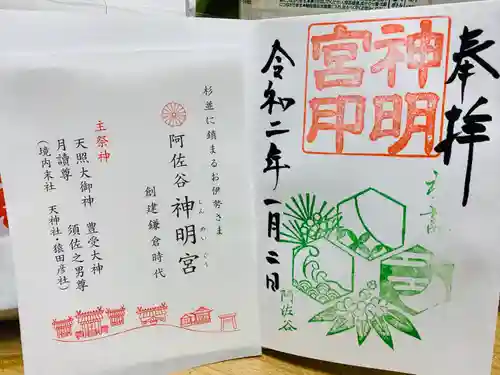 奉拝
神明
宮印
令和二年一月二日
阿佐谷
杉並に鎮まるお伊勢さま
阿佐谷 神明宮
しん めい ぐう
創建鎌倉時代
主祭神
天照大御神 豊受大神
月讀尊 須佐之男尊
(境内末社 天神社・猿田彦社)